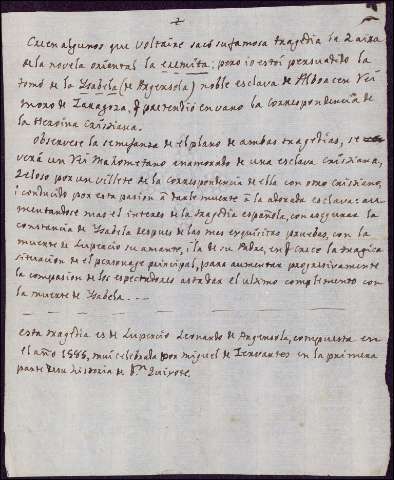 Creen algunos que Voltaire sacó su famosa tragedia la Zaira
de la novela oriental la eremita; pero io estoi persuadido la
tomó de la Ysabela (de Argensola) noble esclava de Alboacen Rei
moro de Zaragoza, q pretendió en vano la correspondencia de
la heroina cristiana.
Observese la semejanza de el plano de ambas tragedias, se
verá un Rei Mahometano enamorado de una esclava cristiana,
zeloso por un villete de la correspondencia de ella con otro cristiano,
i conducido por esta pasion á darle muerte á la adorada esclava: au
mentandose mas el interes de la tragedia española, con asegurar la
constancia de Ysabela despues de las mas exquisitas pruebas, con la
muerte de Lupercio su amante, i la de su Padre, en q crece la tragica
situacion de el personage principal, para aumentar progresivamente
la compasion de los espectadores hasta dar el ultimo complemento con
la muerte de Ysabela . - -
esta tragedia es de Lupercio Leonardo de Argensola, compuesta en
el año 1585, mui celebrada por Miguel de Cervantes en la primera
parte de su historia de Dn Quixote.